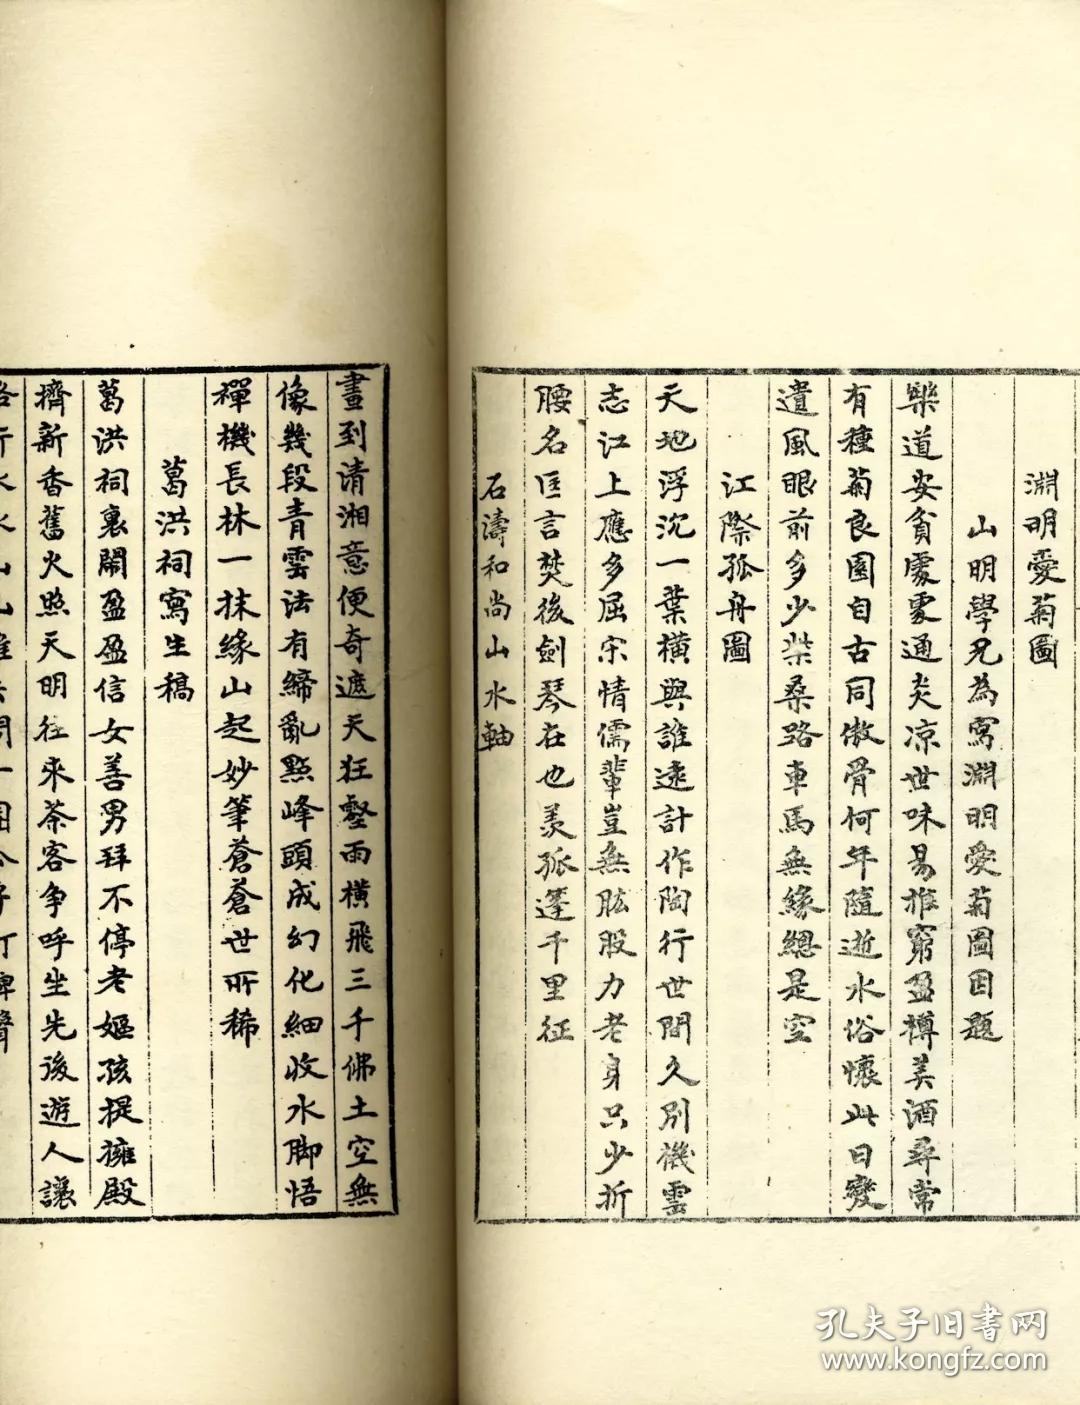 淵明愛菊圖
山明學兄為寫淵明愛菊圖因題
樂道安貧處處通炎凉世味易推窮盈樽美酒尋常
有種菊良園自古同傲骨何年隨逝水俗懷此日變
遺風眼前多少柴桑路車馬無緣總是空
江際孤舟圖
天地浮沉一葉橫與誰遠計作陶行世間久別機雲
志江上應多屈宋情儒輩豈無肱股力老身只少折
腰名匡言焚後劍琴在也羨孤篷千里征
石濤和尚山水軸
畫到清湘意便奇遮天狂壑雨橫飛三千佛土空無
像幾段青雲法有締亂點峰頭成幻化細收水脚悟
禪機長林一抹緣山起妙筆蒼蒼世所稀
葛洪祠寫生稿
葛洪祠裏鬧盈盈信女善男拜不停老嫗孩提擁殿
擠新香舊火照天明往來茶客争呼坐先後遊人讓
孔夫子旧书网
www.kongfz.com